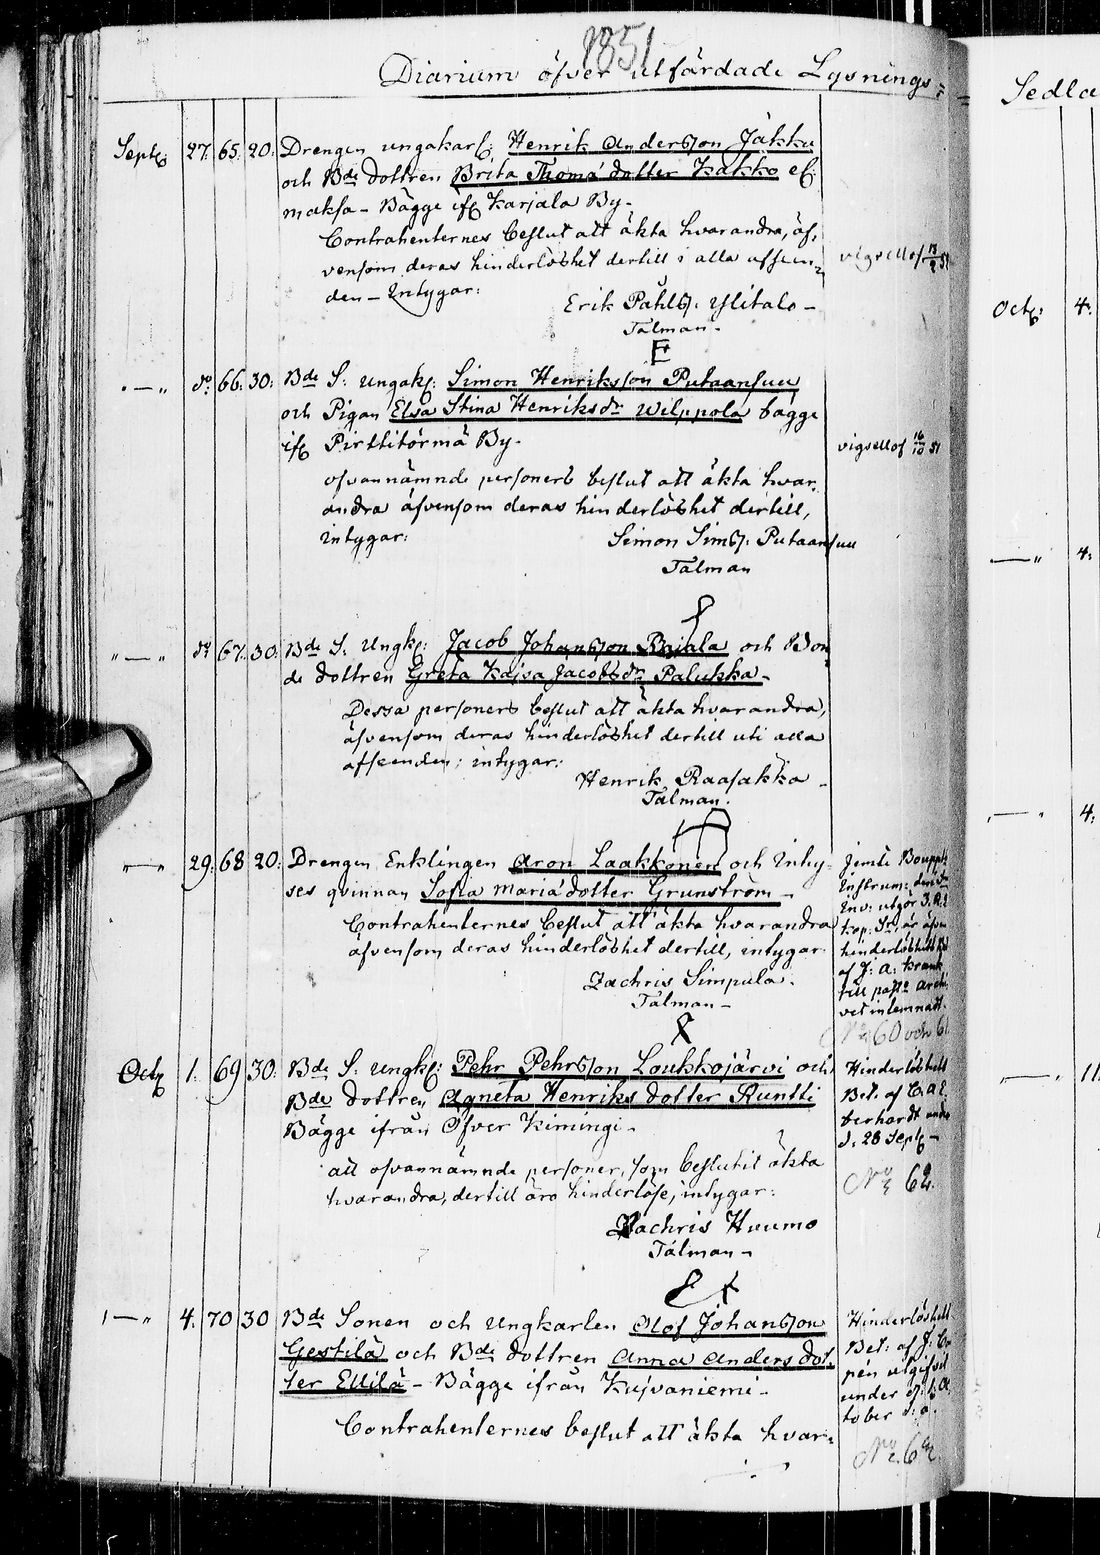 1851
Diarium öfver utfärdade Lysnings-
Sedla
Septr 27. 65. 20. Drengen ungakarl: Henrik Andersson Jäkku
och Bde dottren Brita Thomæ dotter Kakko
maksa - Bägge ifr Karjala By-
Contrahenternes beslut att äkta hvarandra, äf,
vensom deras hinderlöshet dertill i alla afseen-
den - Intygar:
Erik Påhlss. Ylitalo -
Talman -
vigsell of
d:o 66. 30: Bde S: Ungak: Simon Henriksson Putaansuu
och Pigan Elsa Stina Henriksdr Wilppola bägge
ifr Pirttitörmä By-
vigsell of 16/10 51
ofvannämnde personers beslut att äkta hvar-
andra äfvensom deras hinderlöshet dertill,
intygar:
Simon Simss: Putaansuu
Talman
d:o 67. 30: Bde S: Ungk: Jacob Johansson och Bon
de dottren Greta Kajsa Jacobsdr Palukka-
Dessa personers beslut att äkta hvarandra,
äfvensom deras hinderlöshet dertill uti alla
afseenden; intygar:
Henrik Raasakka -
Talman.
29. 68 20: Drengen Enklingen Aron Laakkonen och Inhy-
ses qvinnan Sofia Mariæ dotter Grunström -
Contrahenternes beslut att äkta hvarandra
äfvensom deras hinderlöshet dertill, intygar
Zachris Simpula.
Talman -
Jemte Bouppt
Instrum:
hinderlöshets
af J: A: Krank
till past: Archi
vet inlemnatt.
No 60 och 6
Octr 1. 69 30: Bde S: Ungk: Pehr Pehrsson Loukkojärvi och
Bde dottren Agneta Henriks dotter Runtti
Bägge ifrån Öfver Kimingi-
att ofvannämnde personer, som beslutit äkta
hvarandra, dertill äro hinderlöse, intygar:
Zachris Huumo
Talman -
Hinderlöshets
Bet: af C. A. E
berhardt
d: 28 Septr -
No 62.
4. 70 30 Bde Sonen och Ungkarlen Olof Johansson
Gestilä och Bde dottren Anna Anders dot-
ter Ellilä - Bägge ifrån Kuivaniemi -
Contrahenternes beslut att äkta hvar-
Hinderlöshets
Bet: af J: Ca
pén utgifvet
under d: 1 O
tober d: å.
No 62.
Octr: 4.
4.
4.
11